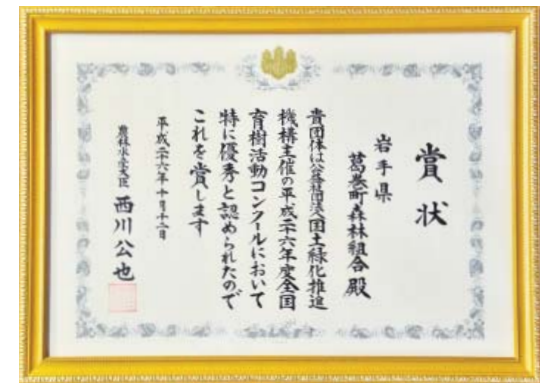 賞状
岩手県
葛巻町森林組合殿
貴団体は公益社団法人国土緑化推進
機構主催の平成二六年度全国
育樹活動コンクールにおいて
特に優秀と認められたので
これを賞します
平成二六年十月十二日
農林水産大臣 西川公也